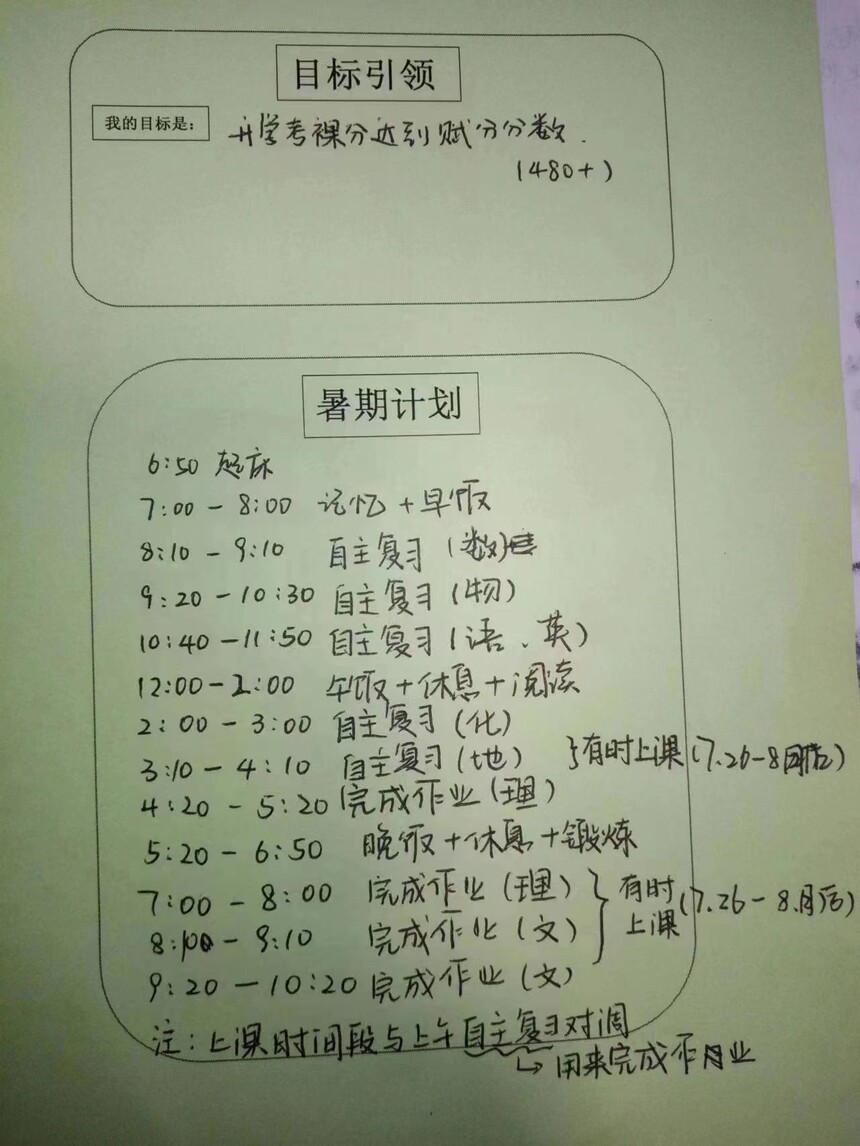 目标引领
我的目标是：
开学考裸分达到赋分分数.
(480+)
暑期计划
6:50 起床
7:00 - 8:00 记忆+早饭
8:10 - 9:10 自主复习(数)
9:20 - 10:30 自主复习(物)
10:40 - 11:50 自主复习(语、英)
12:00 - 2:00 午饭+休息+阅读
2:00 - 3:00 自主复习(化)
3:10 - 4:10 自主复习(地) }有时上课(7.26-8月后)
4:20 - 5:20 完成作业(理)
5:20 - 6:50 晚饭+休息+锻炼
7:00 - 8:00 完成作业(理) }有时上课(7.26-8.月后)
8:10 - 9:10 完成作业(文)
9:20 - 10:20 完成作业(文)
注：上课时间段与上午自主复习对调
↳用来完成作业